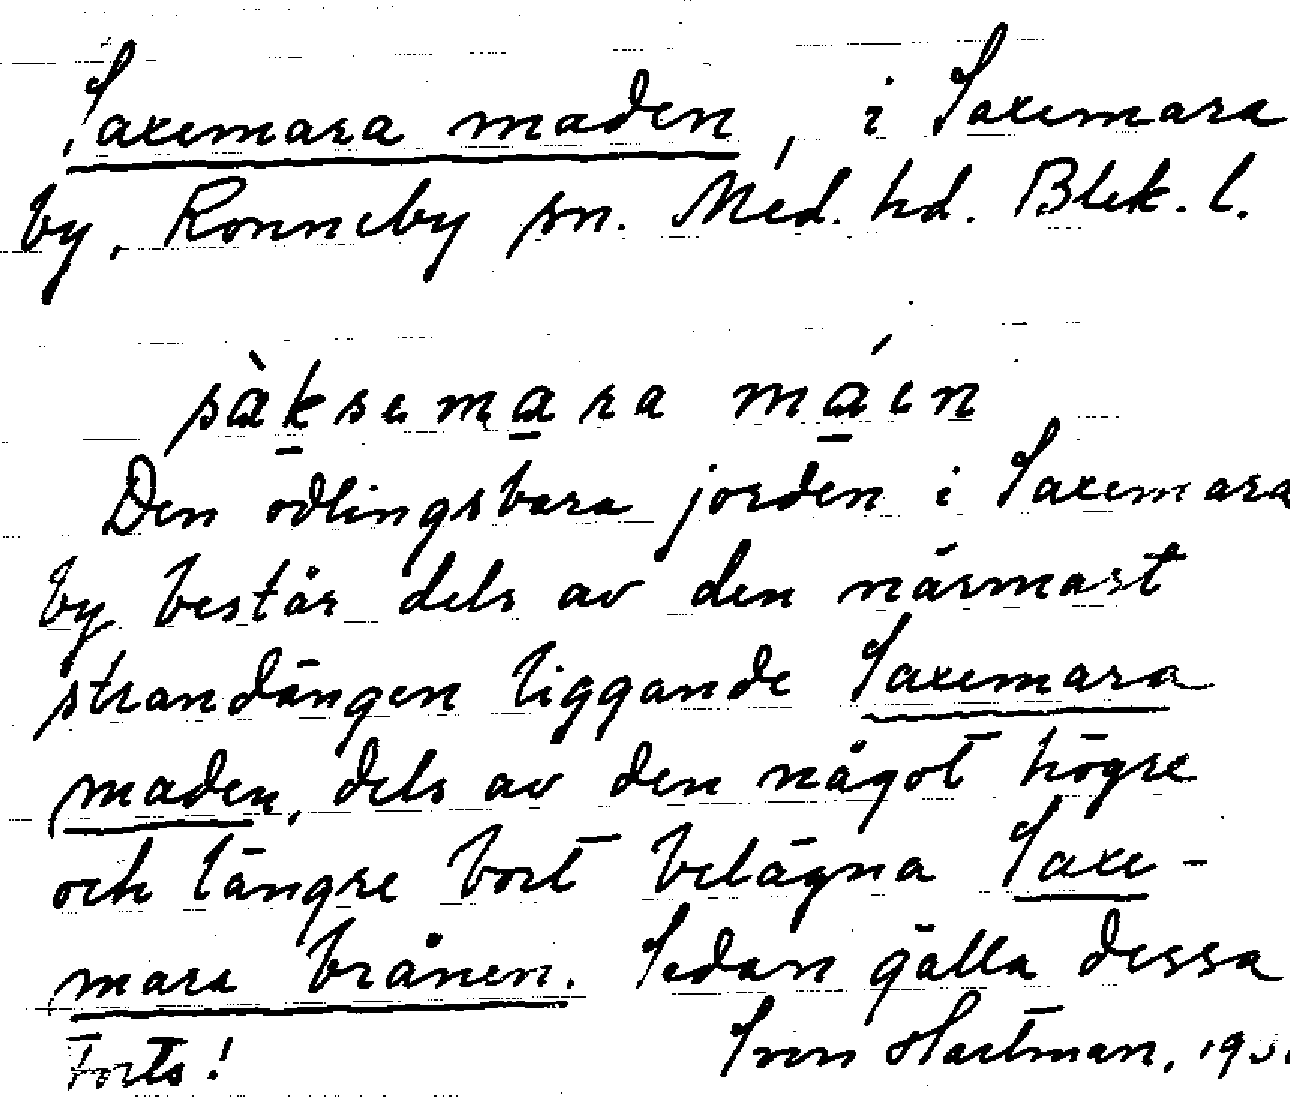 Saxemara maden, i Saxemara
by, Ronneby sn. Med. hd. Blek. l.
sàksemara máen
Den odlingsbara jorden i Saxemara
by består dels av den närmast
strandängen liggande Saxemara
maden, dels av den något högre
och längre bort belägna Saxe-
mara brånen. Sedan gälla dessa
Forts! Sven Hartman,